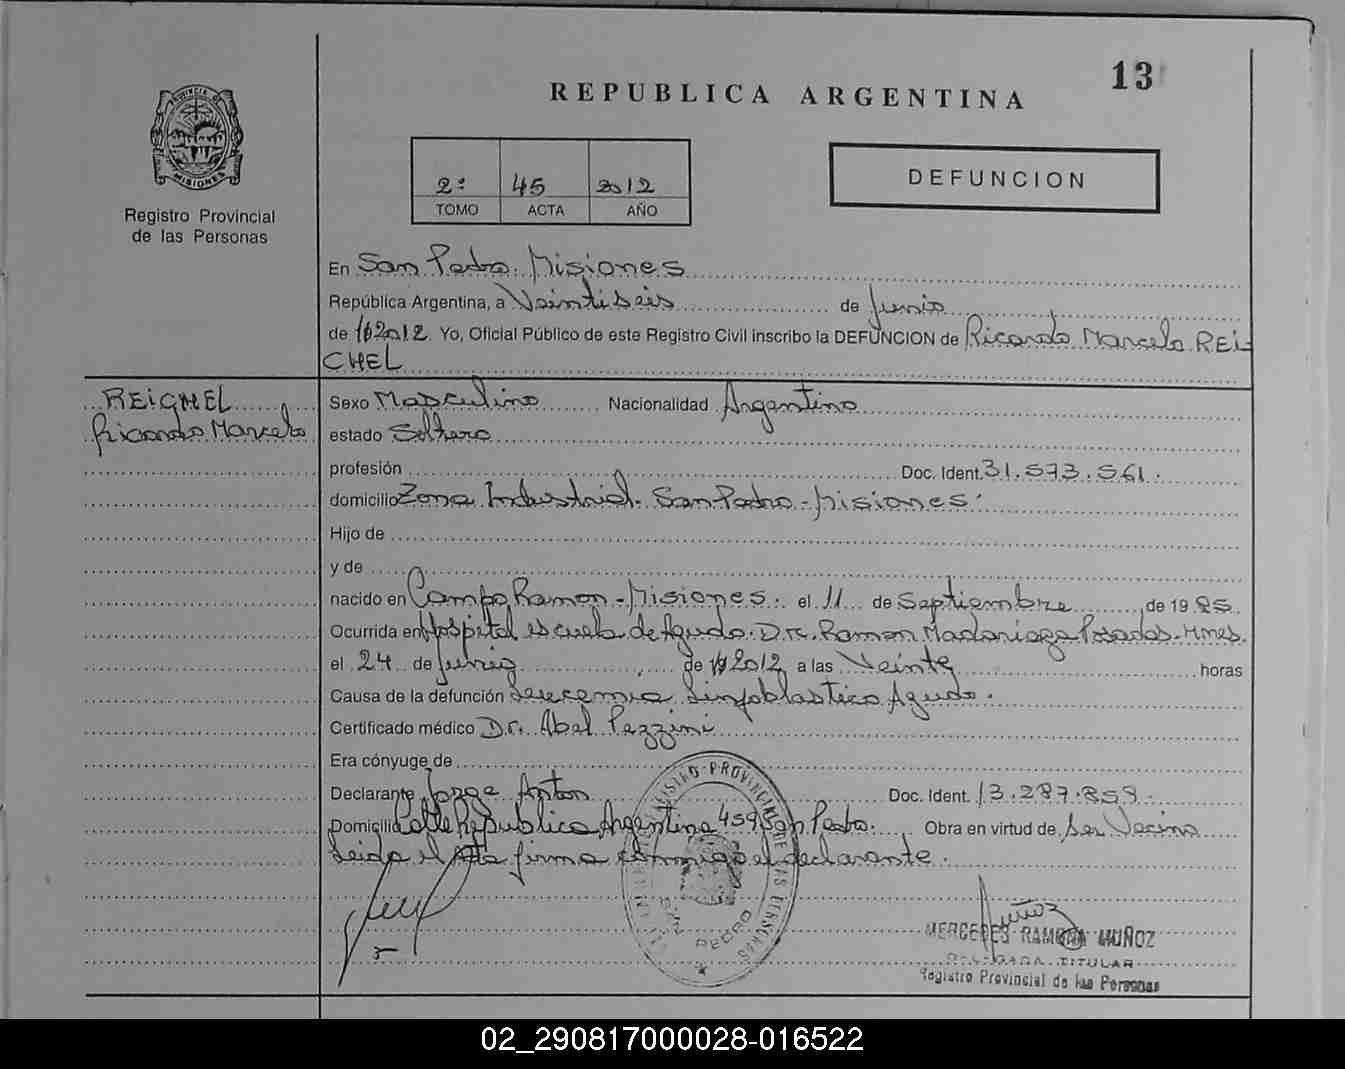 13
REPUBLICA ARGENTINA
PROVINCIA DE MISIONES
Registro Provincial
de las Personas
2º 45 2012
TOMO ACTA AÑO
DEFUNCION
En San Pedro. Misiones
República Argentina, a Veintiseis de Junio
de 2012. Yo, Oficial Público de este Registro Civil inscribo la DEFUNCION de Ricardo Marcelo REI-
CHEL
REICHEL
Ricardo Marcelo
Sexo Masculino Nacionalidad Argentino
estado Soltero
profesión Doc. Ident. 31.573.561.
domicilio Zona Industrial. San Pedro - Misiones.
Hijo de
y de
nacido en Campo Ramon - Misiones. el 11 de Septiembre de 1985.
Ocurrida en Hospital escuela de Agudo. Dr. Ramon Madariaga Posadas - Mnes.
el 24 de Junio de 2012 a las Veinte horas
Causa de la defunción Leucemia Linfoblastica Aguda.
Certificado médico Dr. Abel Pezzini
Era cónyuge de
Declarante Jorge Anton Doc. Ident. 13.287.859.
Domicilio Calle Republica Argentina 459 San Pedro. Obra en virtud de Ser Vecino
Leida el Acta firma conmigo el declarante.
REGISTRO PROVINCIAL DE LAS PERSONAS
SAN PEDRO
MERCEDES RAMONA MUÑOZ
DELEGADA TITULAR
Registro Provincial de las Personas
02_290817000028-016522